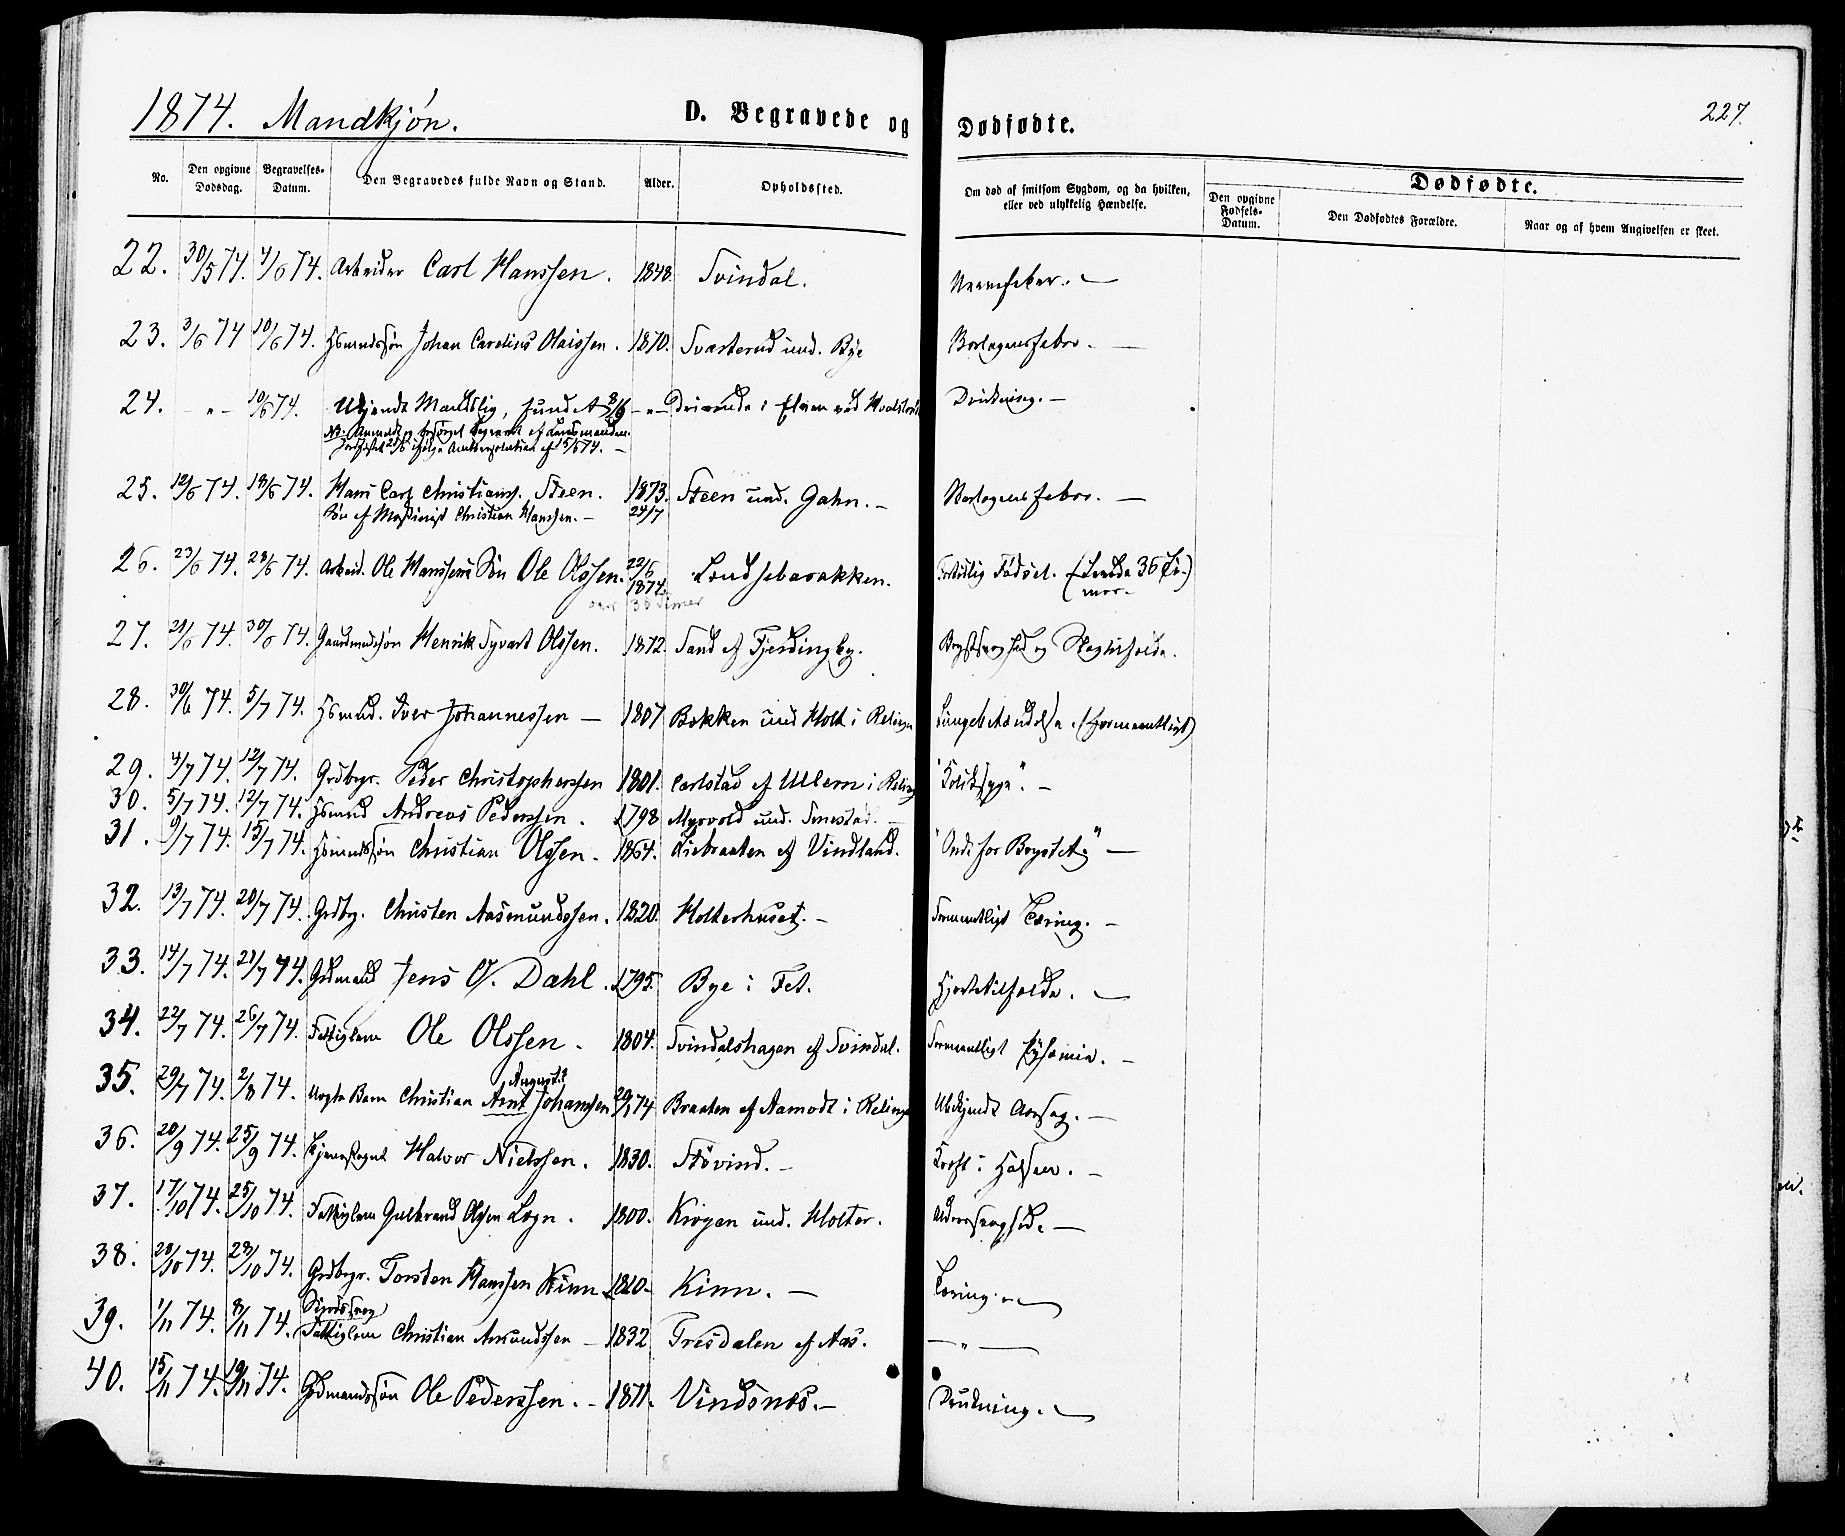 1874. Mandkjön. D. Begravede og Dødfødte. 227.
No. Den opgivne Dødsdag. Begravelses-Datum. Den Begravedes fulde Navn og Stand. Alder. Opholdssted. Om død af smitsom Sygdom, og da hvilken, eller ved ulykkelig Hændelse. Dødfødte. Den opgivne Fødsels-Datum. Den Dødfødtes Forældre. Naar og af hvem Angivelsen er skeet.
22. 30/5 74. 4/6 74. Arbeider Carl Hanssen. 1848. Svindal. Nervefeber. —
23. 3/6 74 10/6 74. Hsmndssøn Johan Carelius Olaissen. 1870. Svarterud und. Bye —
24. — " — 10/6 74. Ukjendt Mandslig, fundet 8/6 — " — Drivende i Elven ved Drukning. —
25. 12/6 74. 18/6 74. Hans Carl Christians. Steen. 1873. Steen und. Gahn. — —
Søn af Maskinist Christian Hanssen. — 24/7
26. 23/6 74. 28/6 74. Arbeid. Ole Hanssens Søn Ole Olssen. 22/6 1874. Lendsebarakken. Fortidlig Fødsel. (Levede 36 Ti-
mer.)
27. 74. 30/6 74. Gaardmndssøn Henrik Syvert Olssen. 1872. Sand af Fjerdingby. Brystsyghed og
28. 30/6 74. 5/7 74. Hsmnd. Iver Johannessen — 1807. Bakken und Holt i Lungebetændelse. (formentligt)
29. 4/7 74. 12/7 74. Grdbrgr. Peder Christophersen 1801. Carlstad af Ullern i "Koliksyge". —
30. 5/7 74. 12/7 74. Hsmnd Andreas Pedersen. 1798 Myrvold und. Tunestad. —
31. 9/7 74. 15/7 74. Hsmndssøn Christian Olssen. 1864. Liebraaten af Vindland. "Ondt for Brystet" —
32. 13/7 74. 20/7 74. Grdbrg. Christen Aasmundssen. 1820. Holterhuset. — Formentligt Tæring. —
33. 14/7 74. 21/7 74. Grdmand Jens O. Dahl. 1795. Bye i Fet. Hjertetilfælde. —
34. 22/7 74. 26/7 74. Fattiglem Ole Olssen. 1804. Svindalshagen af Svindal. Formentligt Pyæmie. —
35. 29/7 74. 2/8 74. Uægte Barn Christian Arnt Johansen 74 Braaten af Aamodt i Ubekjendt Aarsag. —
36. 20/9 74. 25/9 74. Tjenestegut Halvor Nielssen. 1830. Støvind. — Kræft i Halsen. —
37. 17/10 74. 25/10 74. Fattiglem Gulbrand Olssen Løgn. 1800. Krogen und. Holter. Alderssvaghed. —
38. 20/10 74. 28/10 74. Grdbrgr. Torsten Hanssen Kinn. 1810. Kinn. — Tæring. —
39. 1/11 74. 8/11 74. Sindssvag Fattiglem Christian Amundssen — 1832 Tresdalen af Aas. — " —
40. 15/11 74. 19/11 74. Grdmandssøn Ole Pederssen. — 1871. Vindsnæs. — Drukning. —